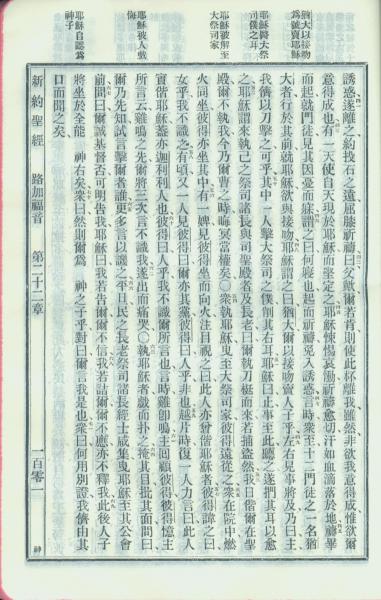 猶大以接吻
為號賣耶穌
耶穌醫大祭
司僕之耳
耶穌被解至
大祭司家
耶穌被人戲
侮
耶穌自認為
神子
誘惑遂離之約投石之遠屈膝祈禱曰父歟爾若肯則使此杯離我雖然非欲我意得成惟欲爾
意得成也有一天使自天現於耶穌而堅定之耶穌悚惕哀慟祈禱愈切汗如血滴落於地禱畢
而起就門徒見其因憂而寐謂之曰何寢也起而祈禱免入誘惑言時衆至十二門徒之一名猶
大者行於其前就耶穌欲與接吻耶穌謂之曰猶大爾以接吻賣人子乎左右見事將及乃曰主
我儕以刀擊之可乎其中一人擊大祭司之僕削其右耳耶穌曰止事至此聽之遂捫其耳以愈
之耶穌謂來執己之祭司諸長與司聖殿者及長老曰爾執刀梃而來若捕盜然我日偕爾在聖
殿爾不執我今乃爾曹之時晦冥當權矣○衆執耶穌曳至大祭司家彼得遠從之衆在院中燃
火同坐彼得亦坐其中有一婢見彼得坐而向火注目視之曰此人亦曾偕耶穌者彼得諱之曰
女乎我不識之有頃又一人見彼得曰爾亦其黨彼得曰人乎非也越片時復一人力言曰此人
實偕耶穌蓋亦迦利利人也彼得曰人乎我不識爾所言也言時雞卽鳴主回顧彼得彼得憶主
所言云雞鳴之先爾將三次言不識我遂出而痛哭○執耶穌者戲而扑之掩其目批其面問曰
爾乃先知試言擊爾者誰耶多言以譏之平旦民之長老祭司諸長經士咸集曳耶穌至其公會
前問曰爾誠基督否可明告我耶穌曰我若告爾爾不信我若詰爾爾不應亦不釋我此後人子
將坐於全能　神右矣衆曰然則爾為　神之子乎對曰爾言我是也衆曰何用別證我儕由其
口面聞之矣
新約聖經　路加福音　第二十二章　一百零一　神